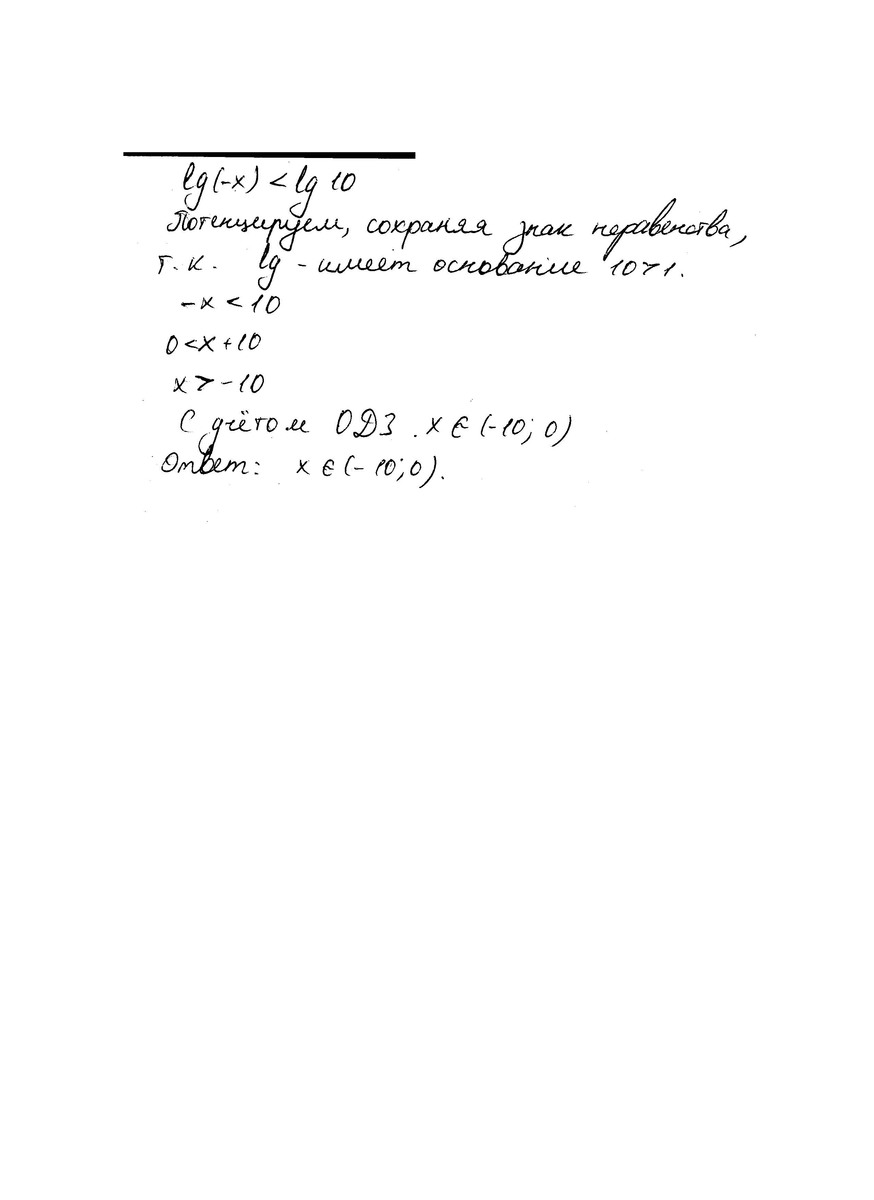 lg(-x) < lg 10
Потенцируем, сохраняя знак неравенства,
т.к. lg - имеет основание 10>1.
-x < 10
0 < x + 10
x > -10
С учётом ОДЗ . x ∈ (-10; 0)
Ответ: x ∈ (-10; 0).